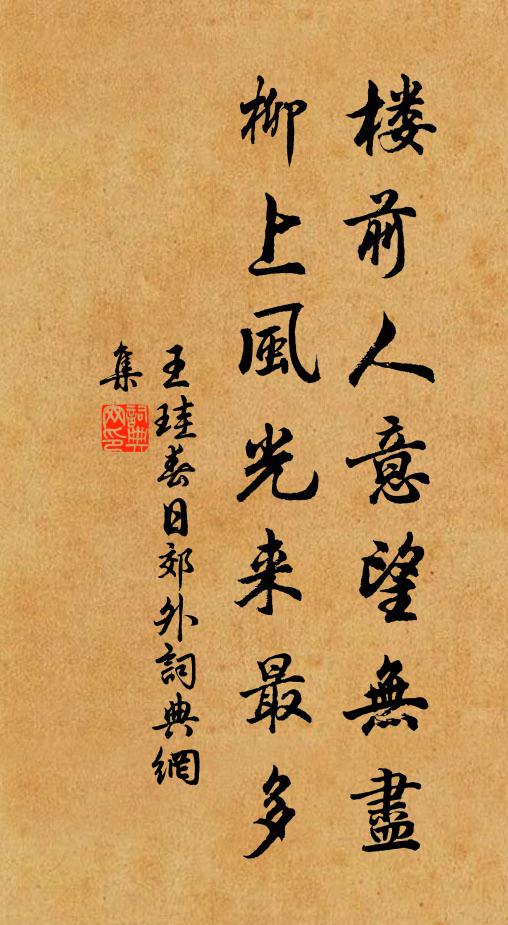 楼前人意望無盡
柳上風光来最多
王珪春日郊外詞典網
集
詞典
网印